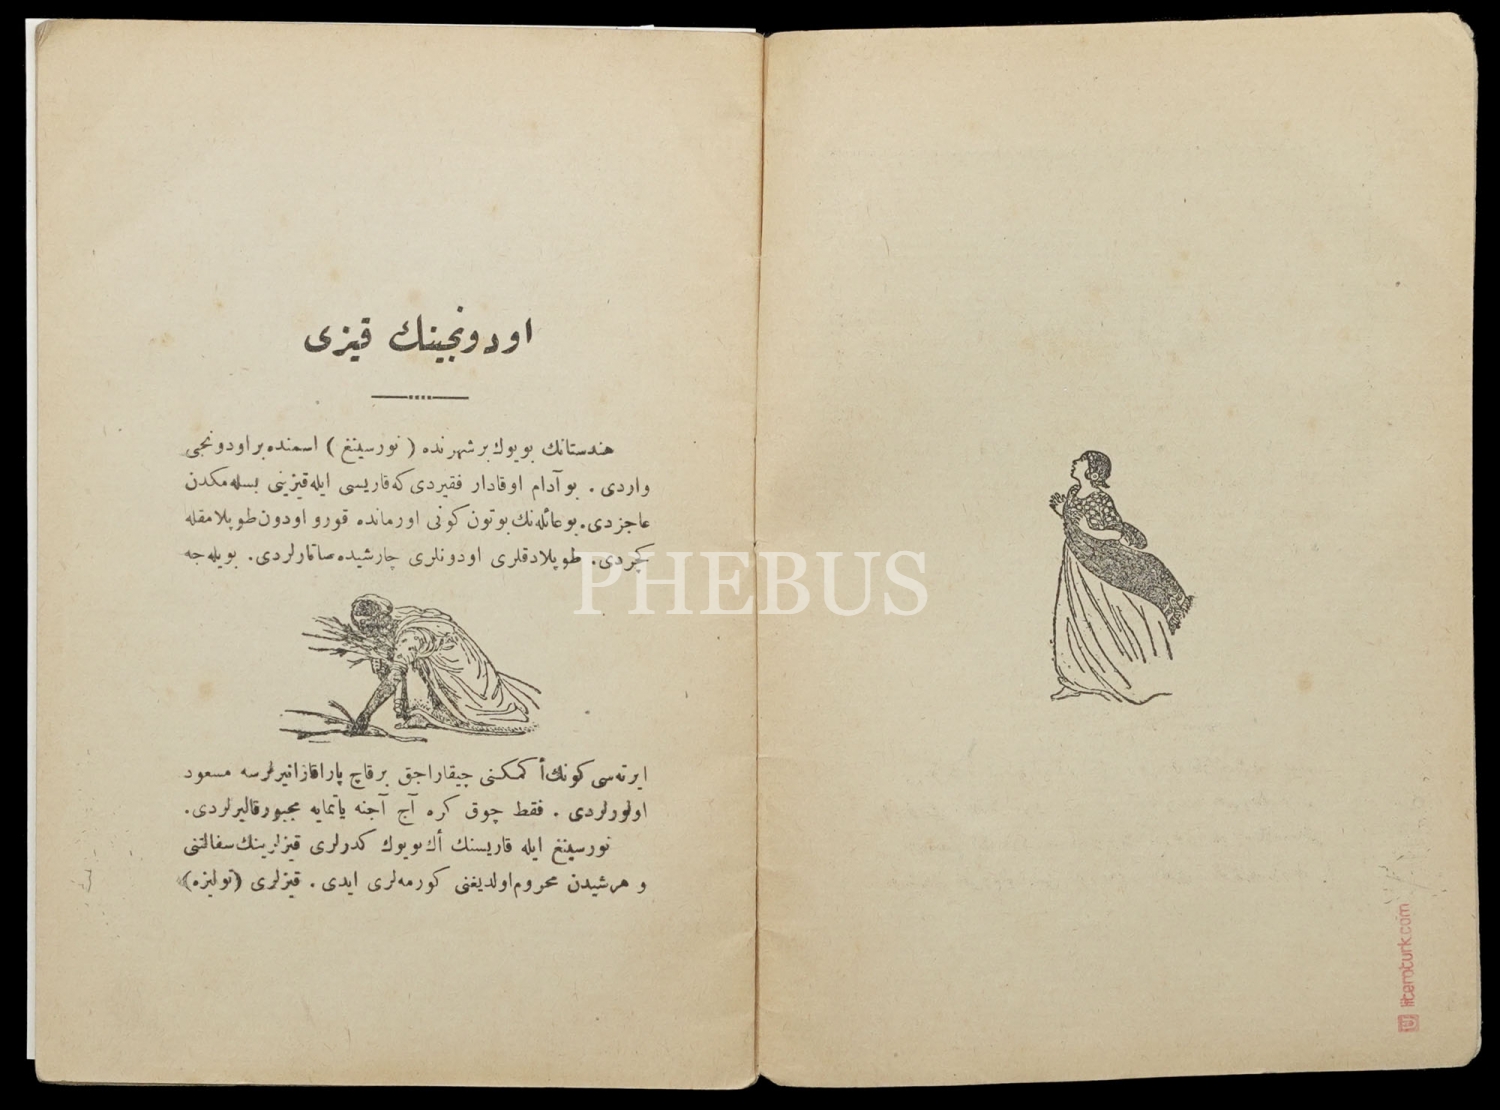 اودونجينك قيزى
هندستانك بويوك بر شهرنده ( نورسينغ ) اسمنده بر اودونجى
واردى . بو آدام اوقادار فقيردى كه قاريسى ايله قيزينى بسله مكدن
عاجزدى. بو عائله نك بوتون كونى اورمانده قورو اودون طوپلامقله
كچردى. طوپلادقلرى اودونلرى چارشيده صاتارلردى. بويله جه
ايرته سى كونك أكمكنى چيقاراجق برقاچ پارا قازانيرلرسه مسعود
اولورلردى . فقط چوق كره آج آجنه ياتمايه مجبور قاليرلردى.
نورسينغ ايله قاريسنك أك بويوك كدرلرى قيزلرينك سفالتنى
و هر شيدن محروم اولديغنى كورمه لرى ايدى . قيزلرى (توليزه)
PHEBUS
literaturk.com